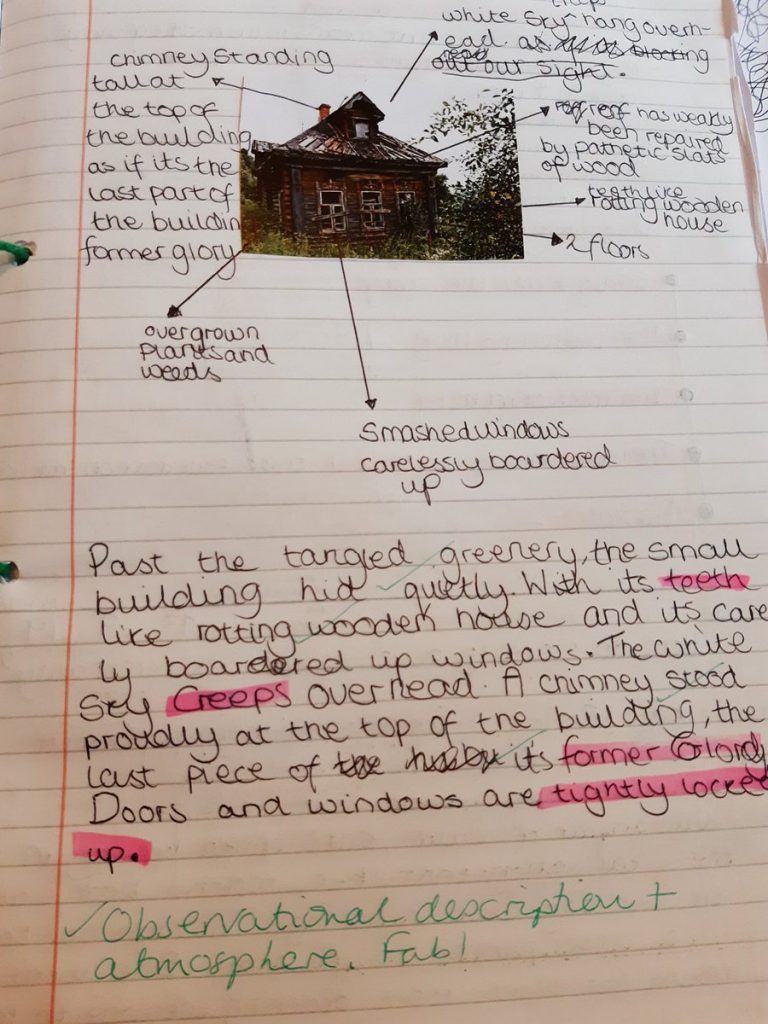 white sky hang overh-
ead. as blocking
out our sight.
chimney standing
tall at
the top of
the building
as if its the
last part of
the buildin
former glory
roof has weakly
been repaired
by pathetic slats
of wood
teeth like
rotting wooden
house
2 floors
overgrown
plants and
weeds
Smashed windows
carelessly boardered
up
Past the tangled greenery, the small
building hid quietly. With its teeth
like rotting wooden house and its care
ly boardered up windows. The white
sky creeps overhead. A chimney stood
proudly at the top of the building, the
last piece of the it's former Glory
Doors and windows are tightly locked
up.
✓ Observational description +
atmosphere. Fab!